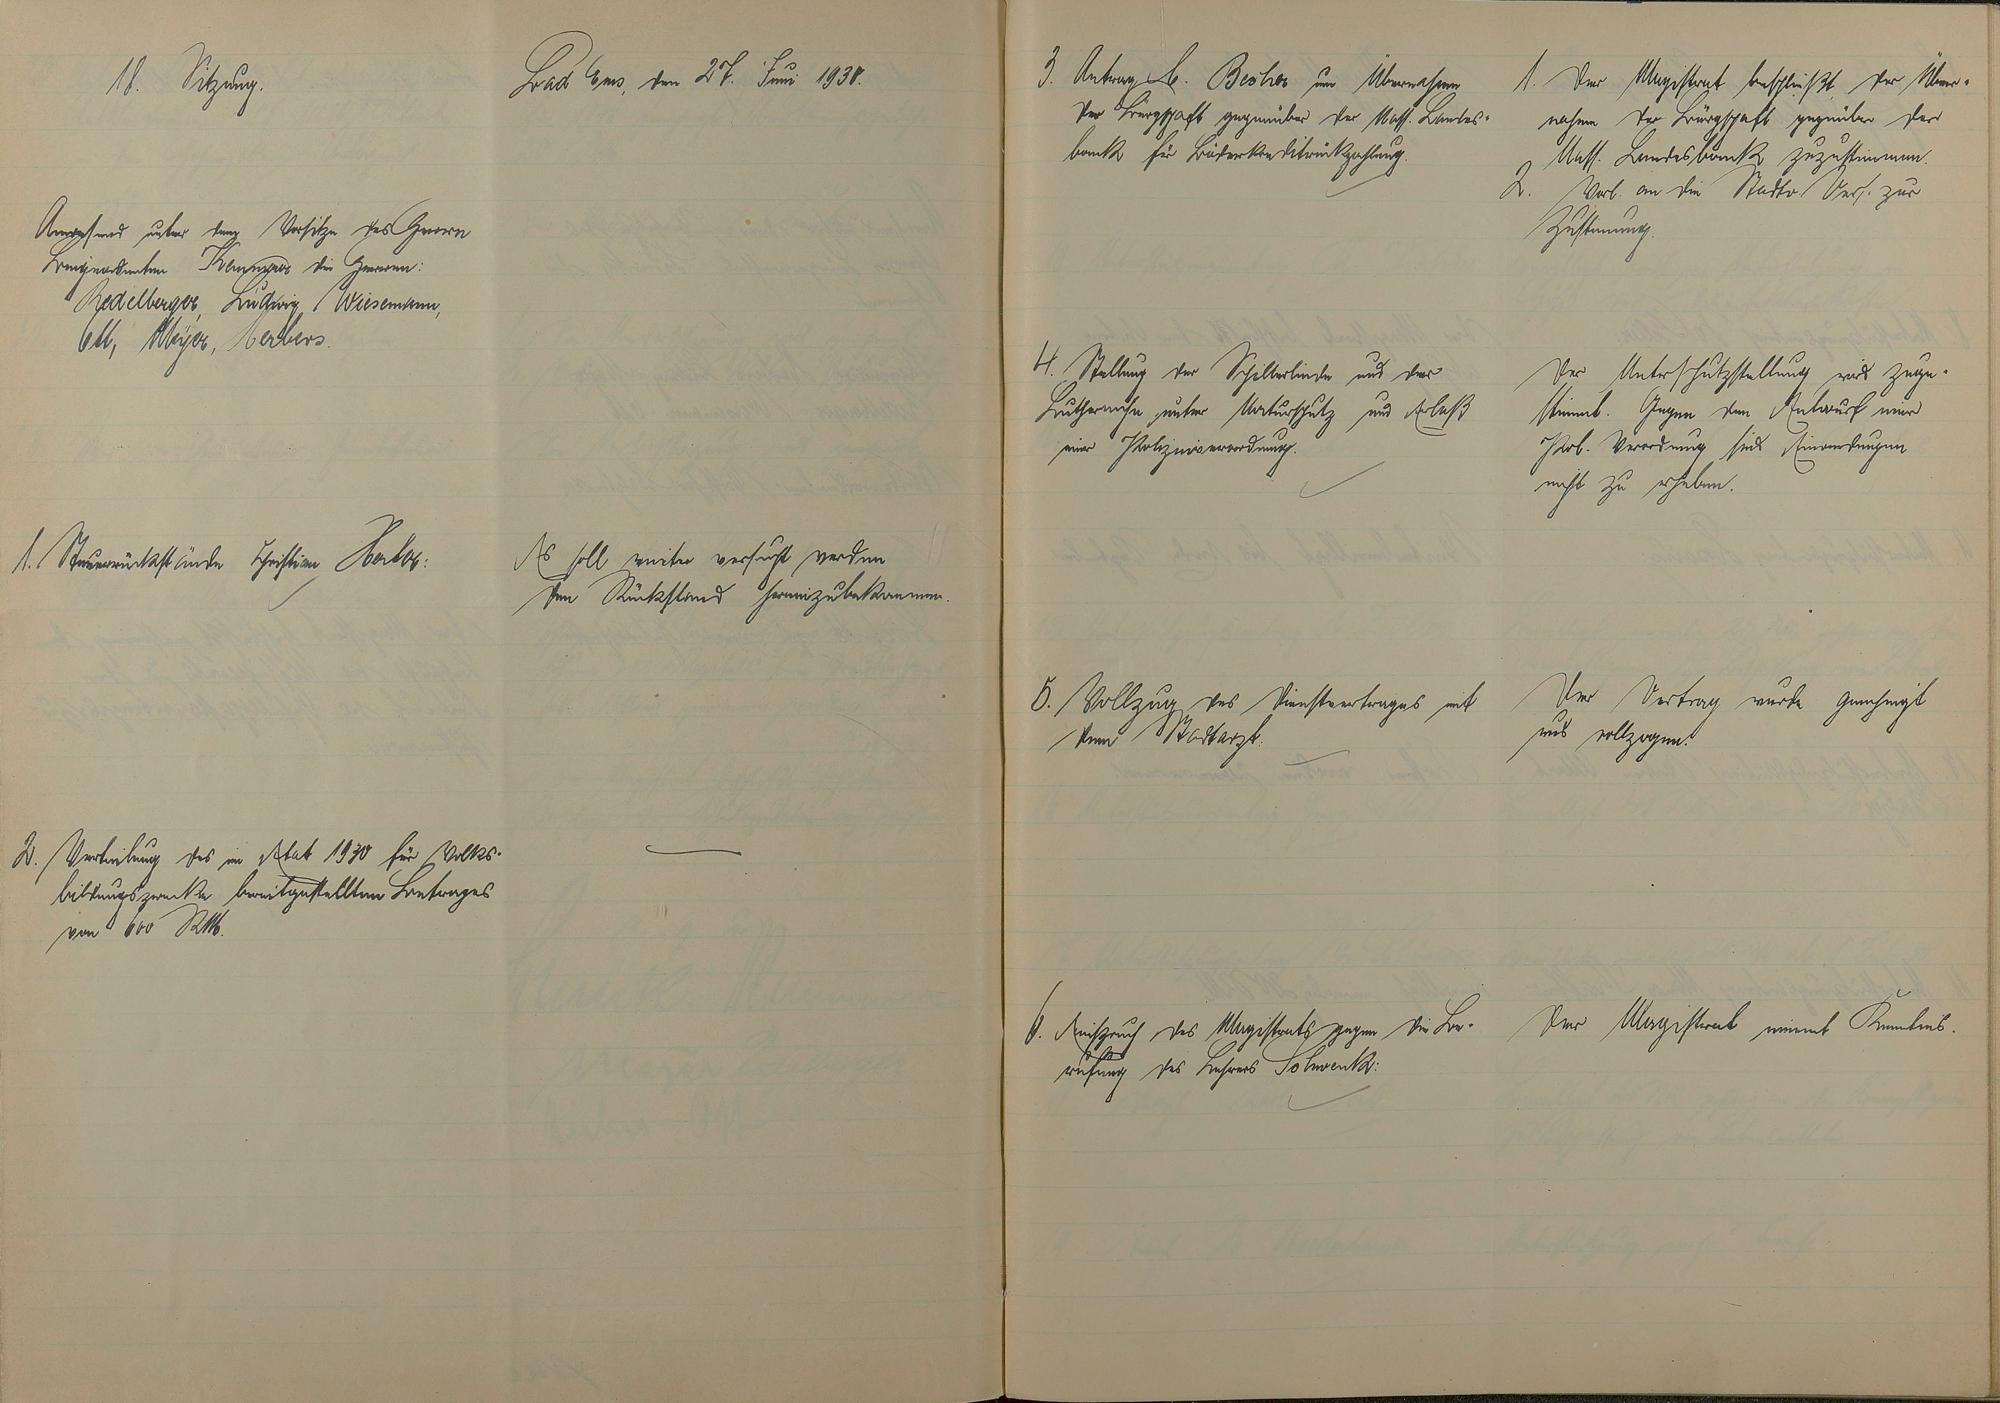 18. Sitzung.
Bad Ems, den 27. Juni 1930.
Anwesend unter dem Vorsitze des Herrn
Beigeordneten Kemmer die Herren:
Redelberger, Ludwig, Wiesemann,
Ott, Meyer, Herbers.
1. Steuerrückstände Christian
Es soll weiter versucht werden
den Rückstand hereinzubekommen.
2. Verteilung des im Etat 1930 für Volks-
bildungszwecke bereitgestellten Betrages
von 600 RM.
3. Antrag C. Becher um Übernahme
der Bürgschaft gegenüber der Nass. Landes-
bank für Bäderkreditrückzahlung.
1. Der Magistrat beschließt der Über-
nahme der Bürgschaft gegenüber der
Nass. Landesbank zuzustimmen.
2. Vorl. an die Stadtv. Vers. zur
Zustimmung.
4. Stellung der Schillerlinde und der
Luthereiche unter Naturschutz und Erlaß
einer Polizeiverordnung.
Der Unterschutzstellung wird zuge-
stimmt. Gegen den Entwurf einer
Pol. Verordnung sind Einwendungen
nicht zu erheben.
5. Vollzug des Dienstvertrages mit
dem Stadtarzt.
Der Vertrag wurde genehmigt
und vollzogen.
6. Einspruch des Magistrats gegen die Be-
rufung des Lehrers Schwenk:
Der Magistrat nimmt Kenntnis.